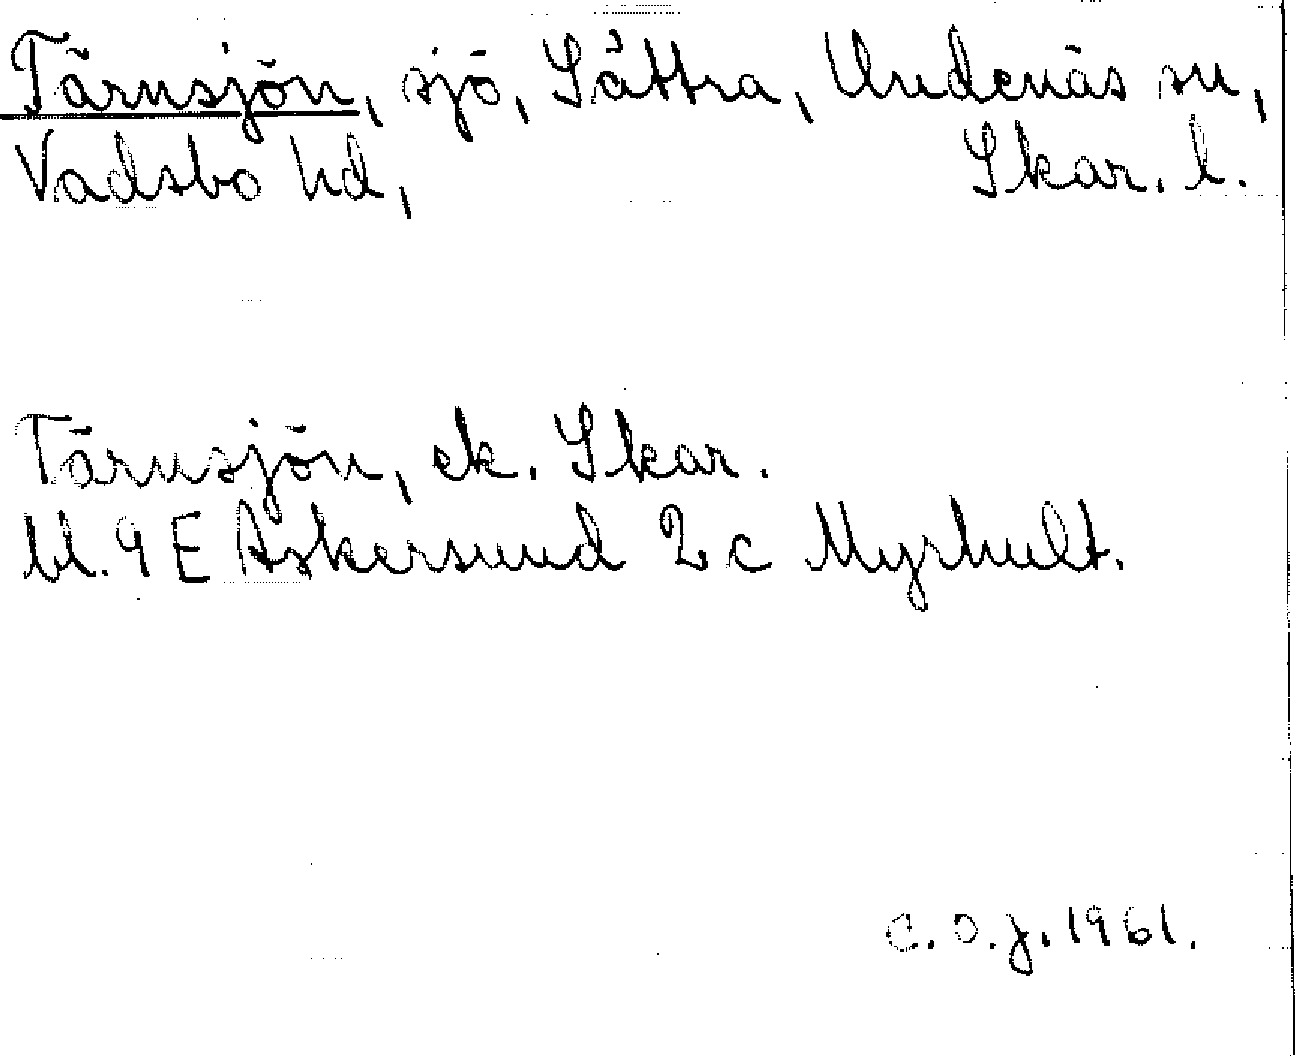 Tärnsjön, sjö, Såttra, Undenäs sn,
Vadsbo hd, Skar. l.
Tärnsjön, ek. Skar.
bl. 9 E Askersund 2 c Myrhult.
C. O. J. 1961.